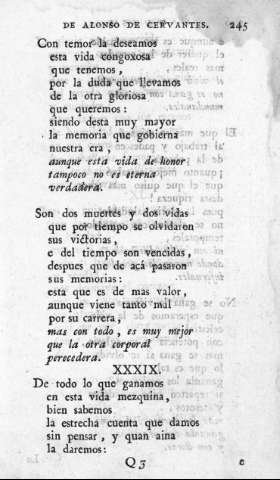 DE ALONSO DE CERVANTES. 245
Con temor la deseamos
esta vida congoxosa
que tenemos,
por la duda que llevamos
de la otra gloriosa
que queremos:
siendo desta muy mayor
la memoria que gobierna
nuestra era,
aunque esta vida de honor
tampoco no es eterna
verdadera.
Son dos muertes y dos vidas
que por tiempo se olvidaron
sus victorias,
e del tiempo son vencidas,
despues que de acá pasaron
sus memorias:
esta que es de mas valor,
aunque viene tanto mal
por su carrera,
mas con todo, es muy mejor
que la otra corporal
perecedera.
XXXIX.
De todo lo que ganamos
en esta vida mezquina,
bien sabemos
la estrecha cuenta que damos
sin pensar, y quan aina
la daremos:
Q3 e